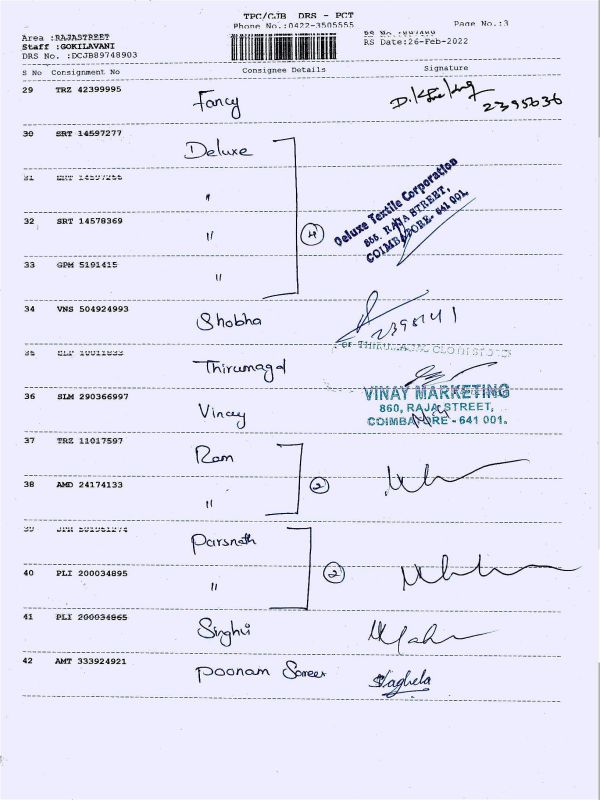 TPC/CJB DRS - PCT
Phone No.:0422-3505555
Page No.:3
Area :RAJASTREET
Staff :GOKILAVANI
DRS No. :DCJB89748903
RS Date:26-Feb-2022
S No Consignment No Consignee Details Signature
29 TRZ 42399995 Fancy
2395636
30 SRT 14597277 Deluxe
31 "
32 SRT 14578369 " 4
Deluxe Textile Corporation
855, RAJA STREET,
COIMBATORE- 641 001.
33 GPM 5191415 "
34 VNS 504924993 Shobha
35 Thirumagal
THIRUMAGAL CLOTH STORES
36 SLM 290366997 Vinay
VINAY MARKETING
860, RAJA STREET,
COIMBATORE - 641 001.
37 TRZ 11017597 Ram
38 AMD 24174133 " 2
39 Parsnath
40 PLI 200034895 " 2
41 PLI 200034865 Singhvi
42 AMT 333924921 Poonam Saree